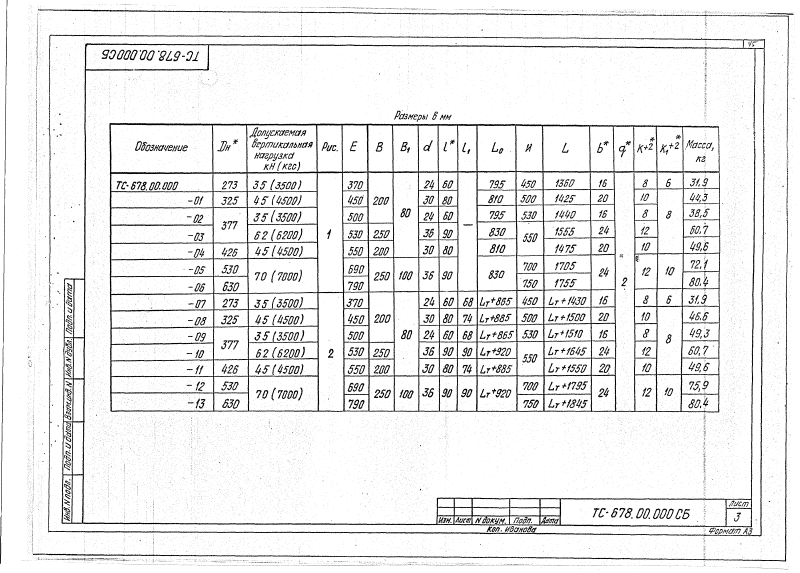 ТС-678.00.000СБ
45
Размеры в мм
Обозначение Dн* Допускаемая вертикальная нагрузка кН (кгс) Рис. E B B1 d l* l1 L0 И L b* q* K+2* K1+2* Масса, кг
ТС-678.00.000 273 35 (3500) 1 370 200 80 24 60 — 795 450 1360 16 2 8 6 31,9
-01 325 45 (4500) 450 30 80 810 500 1425 20 10 8 44,3
-02 377 35 (3500) 500 24 60 795 530 1440 16 8 38,5
-03 62 (6200) 530 250 36 90 830 550 1565 24 12 60,7
-04 426 45 (4500) 550 200 30 80 810 1475 20 10 49,6
-05 530 70 (7000) 690 250 100 36 90 830 700 1705 24 12 10 72,1
-06 630 790 750 1755 80,4
-07 273 35 (3500) 2 370 200 80 24 60 68 Lт+865 450 Lт+1430 16 8 6 31,9
-08 325 45 (4500) 450 30 80 74 Lт+885 500 Lт+1500 20 10 8 46,6
-09 377 35 (3500) 500 24 60 68 Lт+865 530 Lт+1510 16 8 49,3
-10 62 (6200) 530 250 36 90 90 Lт+920 550 Lт+1645 24 12 60,7
-11 426 45 (4500) 550 200 30 80 74 Lт+885 Lт+1550 20 10 49,6
-12 530 70 (7000) 690 250 100 36 90 90 Lт+920 700 Lт+1795 24 12 10 75,9
-13 630 790 750 Lт+1845 80,4
Инв.N подл. Подп. и дата Взам.инв.N Инв.N дубл. Подп. и дата
Изм. Лист N докум. Подп. Дата
ТС-678.00.000 СБ
Лист
3
Коп. Иванова
Формат А3